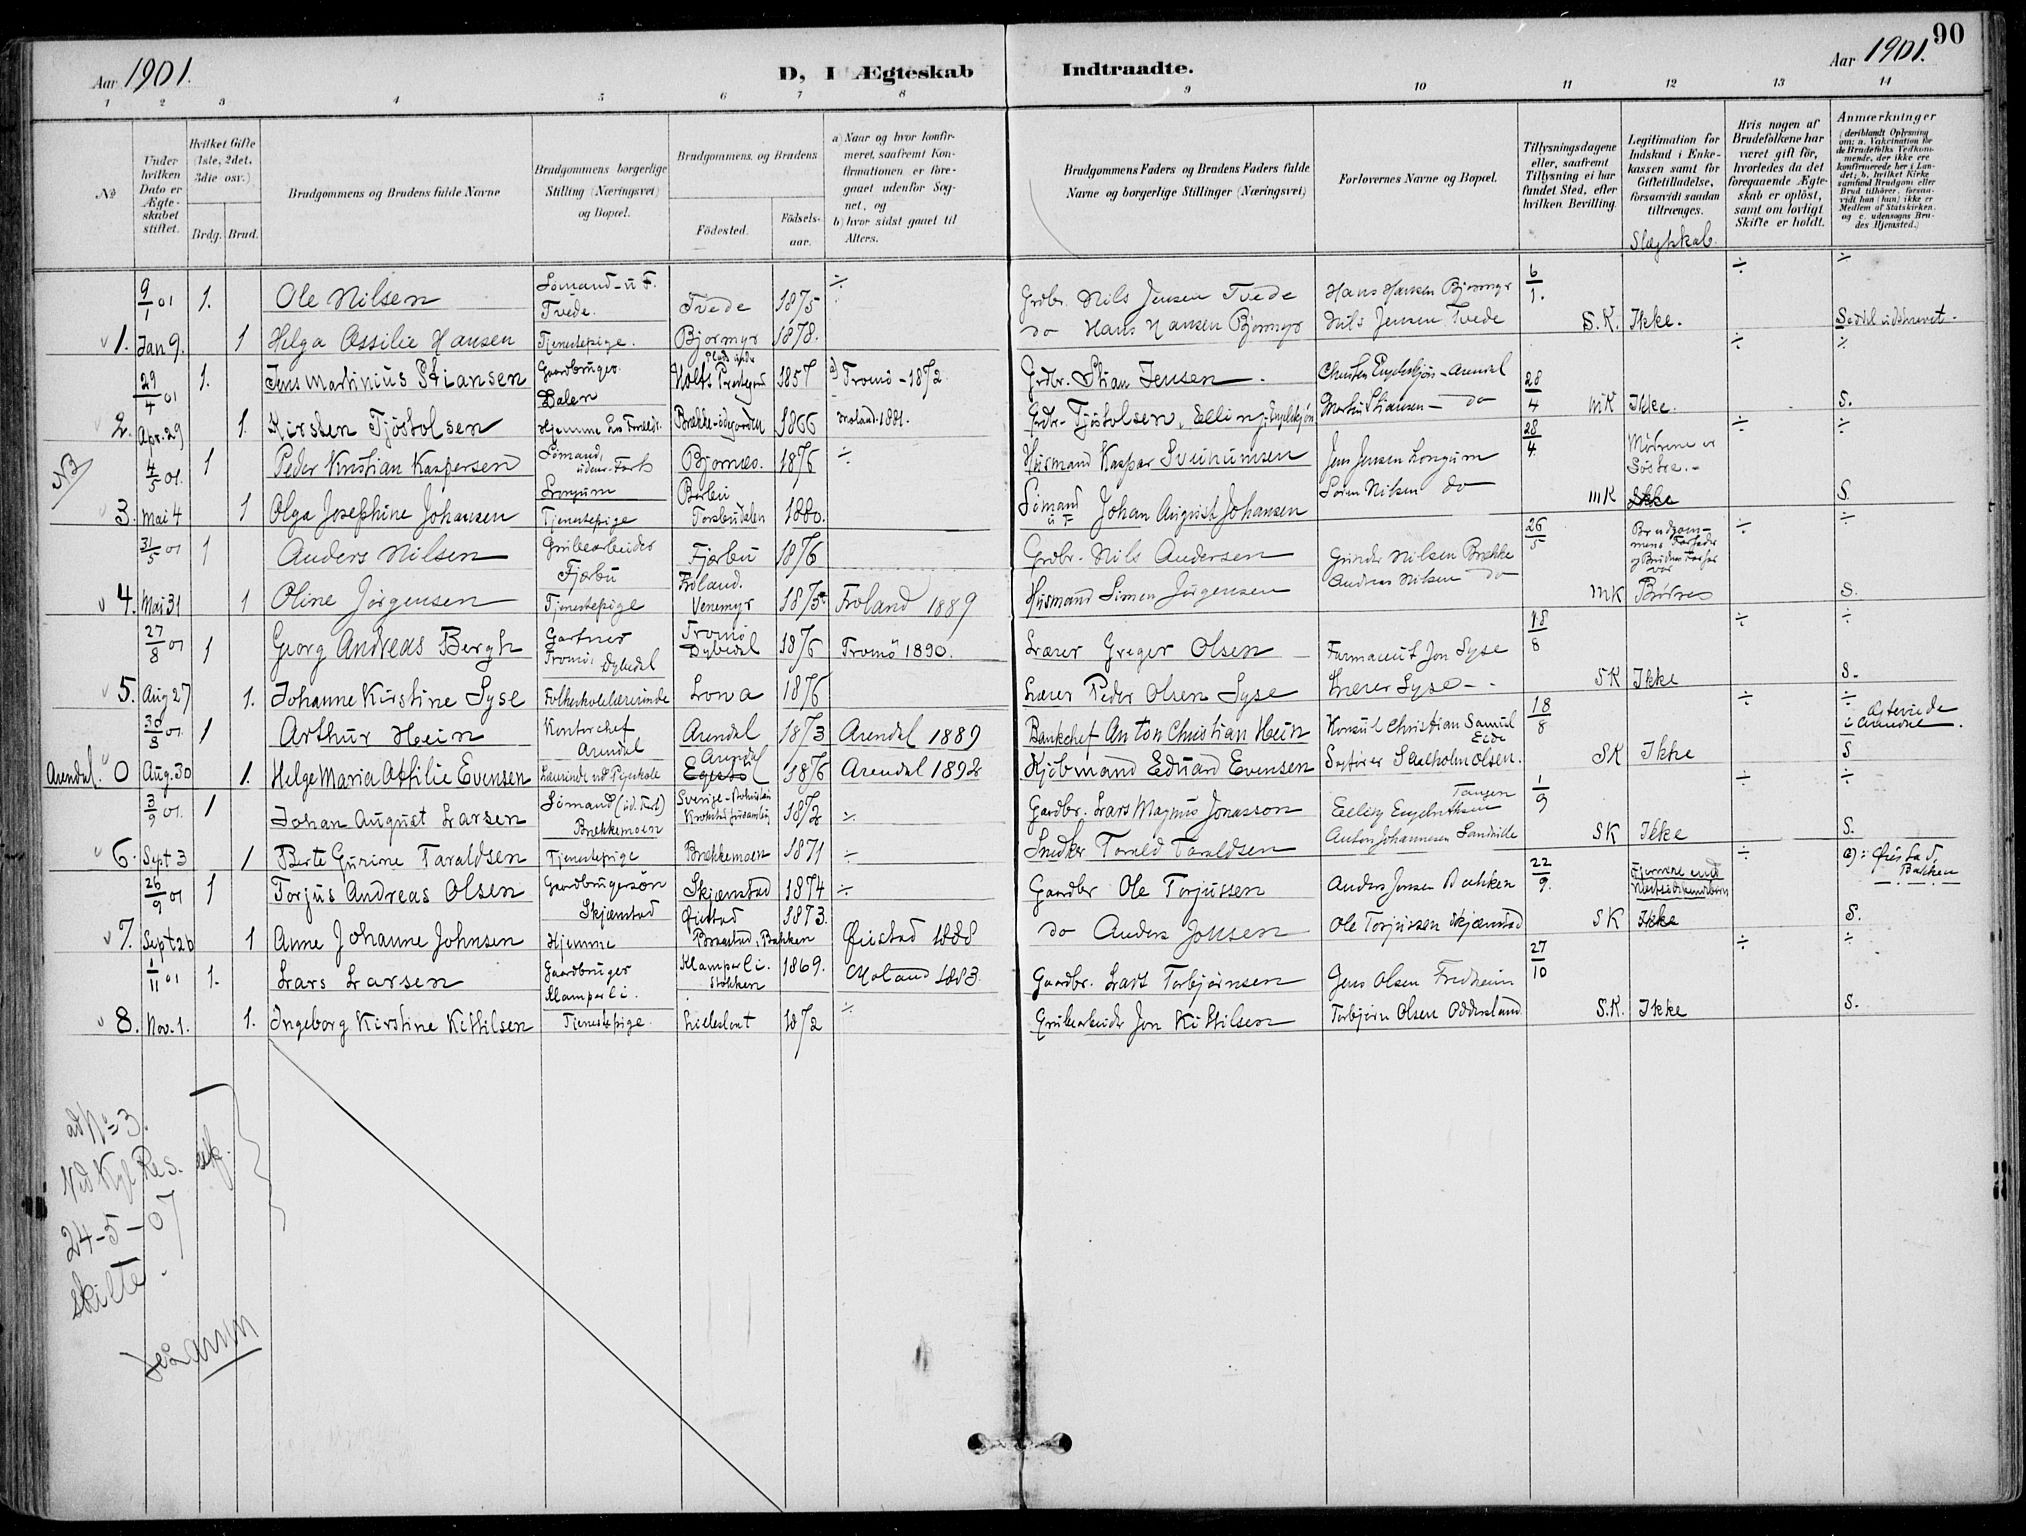 90
Aar 1901.
D, I Ægteskab Indtraadte.
Aar 1901.
1 2 3 4 5 6 7 8 9 10 11 12 13 14
No
Under hvilken Dato er Ægteskabet stiftet.
Hvilket Gifte (1ste, 2det, 3die osv.)
Brdg. Brud.
Brudgommens og Brudens fulde Navne
Brudgommens borgerlige Stilling (Næringsvei) og Bopæl.
Brudgommens og Brudens
Fødested. Fødselsaar.
a) Naar og hvor konfirmeret, saafremt Konfirmationen er foregaaet udenfor Sognet, og
b) hvor sidst gaaet til Alters.
Brudgommens Faders og Brudens Faders fulde Navne og borgerlige Stillinger (Næringsvei)
Forlovernes Navne og Bopæl.
Tillysningsdagene eller, saafremt Tillysning ei har fundet Sted, efter hvilken Bevilling.
Legitimation for Indskud i Enkekassen samt for Giftetilladelse, forsaavidt saadan tiltrænges.
Slægtskab.
Hvis nogen af Brudefolkene har været gift før, hvorledes da det foregaaende Ægteskab er opløst, samt om lovligt Skifte er holdt.
Anmærkninger
(deriblandt Oplysning om: a. Vakcination for de Brudefolks Vedkommende, der ikke ere konfirmerede her i Landet; b. hvilket Kirkesamfund Brudgom eller Brud tilhører, forsaavidt han (hun) ikke er Medlem af Statskirken, og c. udensogns Brudes Hjemsted.)
9/1 01 1. Ole Nilsen Sømand - u. F. Tvede. Tvede 1875 ÷ Grdbr. Nils Jensen Tvede Hans Hansen Bjormyr 6/1. ÷ ÷
1. Jan 9. 1 Helga Assilie Hansen Tjenestepige. Bjormyr 1878. do Hans Hansen Bjormyr Nils Jensen Tvede S.K. Ikke. Seddel udskrevet.
29/4 01 1. Jens Martinius Stiansen Gaardbruger. Dalen Plads under Holts Prestegaard 1857 a) Tromø - 1872 Grdbr. Stian Jensen - Arendal 28/4 ÷ ÷
2. Apr. 29 1. Kirsten Tjøstolsen Hjemme hos Foreldr. Brække-ødegaarden 1866 Moland 1881. Grdbr. Tjøstolsen, Elling, Martin Stiansen - do MK Ikke. S.
NB
4/5 01. 1 Peder Kristian Kaspersen Sømand, udenr. Farts Longum Bjornes. 1876 ÷ Husmand Kaspar Svenumsen Jens Jensen Longum 28/4 Mødrene er Søstre.- ÷ ÷
3. Mai 4 1 Olga Josephine Johansen Tjenestepige Barbu Torsbudalen 1880. Sømand u F Johan August Johansen Søren Nilsen do MK Ikke S.
31/5 01 1 Anders Nilsen Grubearbeider Fjærbu Fjærbu 1876 Grdbr. Nils Andersen Gunder Nilsen Brække 26/5 Brudgommens Farfader og Brudens Farfar var ÷ ÷
4. Mai 31 1 Oline Jørgensen Tjenestepige Froland. Venemyr 1875 Froland 1889 Husmand Simon Jørgensen Andreas Nilsen do MK Brødre S.
27/8 01 1 Georg Andreas Bergh Gartner Tromø, Dybedal Tromø Dybedal 1876 Tromø 1890. Lærer Greger Olsen Farmaceut Jon Syse 18/8 ÷ ÷
5. Aug 27 1. Johanne Kirstine Syse Folkeskolelærerinde Lona 1876 Lærer Peder Olsen Syse Lærer Syse - SK Ikke S.
30/8 01. 1 Arthur Hein Kontorchef Arendal Arendal 1873 Arendal 1889 Bankchef Anton Christian Hein Konsul Christian Samuel Eide 18/8 ÷ ÷ Asteviede i Arendal.
Arendal. 0 Aug. 30 1. Helge Maria Attilie Evensen Lærerinde ved Pigeskole Arendal 1876 Arendal 1892 Kjøbmand Eduard Evensen Sagfører Saxeholm Olsen. SK Ikke S
3/9 01. 1 Johan August Larsen Sømand (ud. Fart) Brækkemoen Sverige - 1872 ÷ Gaardbr. Lars Magnus Jonasson Tangen 1/9 ÷ ÷
6. Sept 3 1 Berte Gurine Taraldsen Tjenestepige Brækkemoen 1871 ÷ Snedker Tarald Taraldsen Anton Johannesen SK Ikke S.
26/9 01 1 Torjus Andreas Olsen Gaardbrugersøn Skjæmstad Skjæmstad 1874 ÷ Gaardbr Ole Torjussen Anders Jensen Bakken 22/9. ÷ c): Øiestad, Bakken
7. Sept 26 1 Anne Johanne Johnsen Hjemme Øiestad Bakken 1873. Øiestad 1888 do Anders Jonsen Ole Torjussen Skjæmstad SK Ikke S.
1/11 01 1. Lars Larsen Gaardbruger Klamperli. Klamperli. Stokken 1869. Moland 1883. Gaardbr. Lars Torbjørnsen Jens Olsen Fredheim 27/10 ÷ ÷
8. Nov. 1. 1. Ingeborg Kirstine Kittilsen Tjenestepige. 1872 ÷ Grubearbeider Jon Kittilsen Torbjørn Olsen Oddersland. S.K. Ikke S.
ad No 3.
Ved Kgl Res. af
24-5-07
skilte.